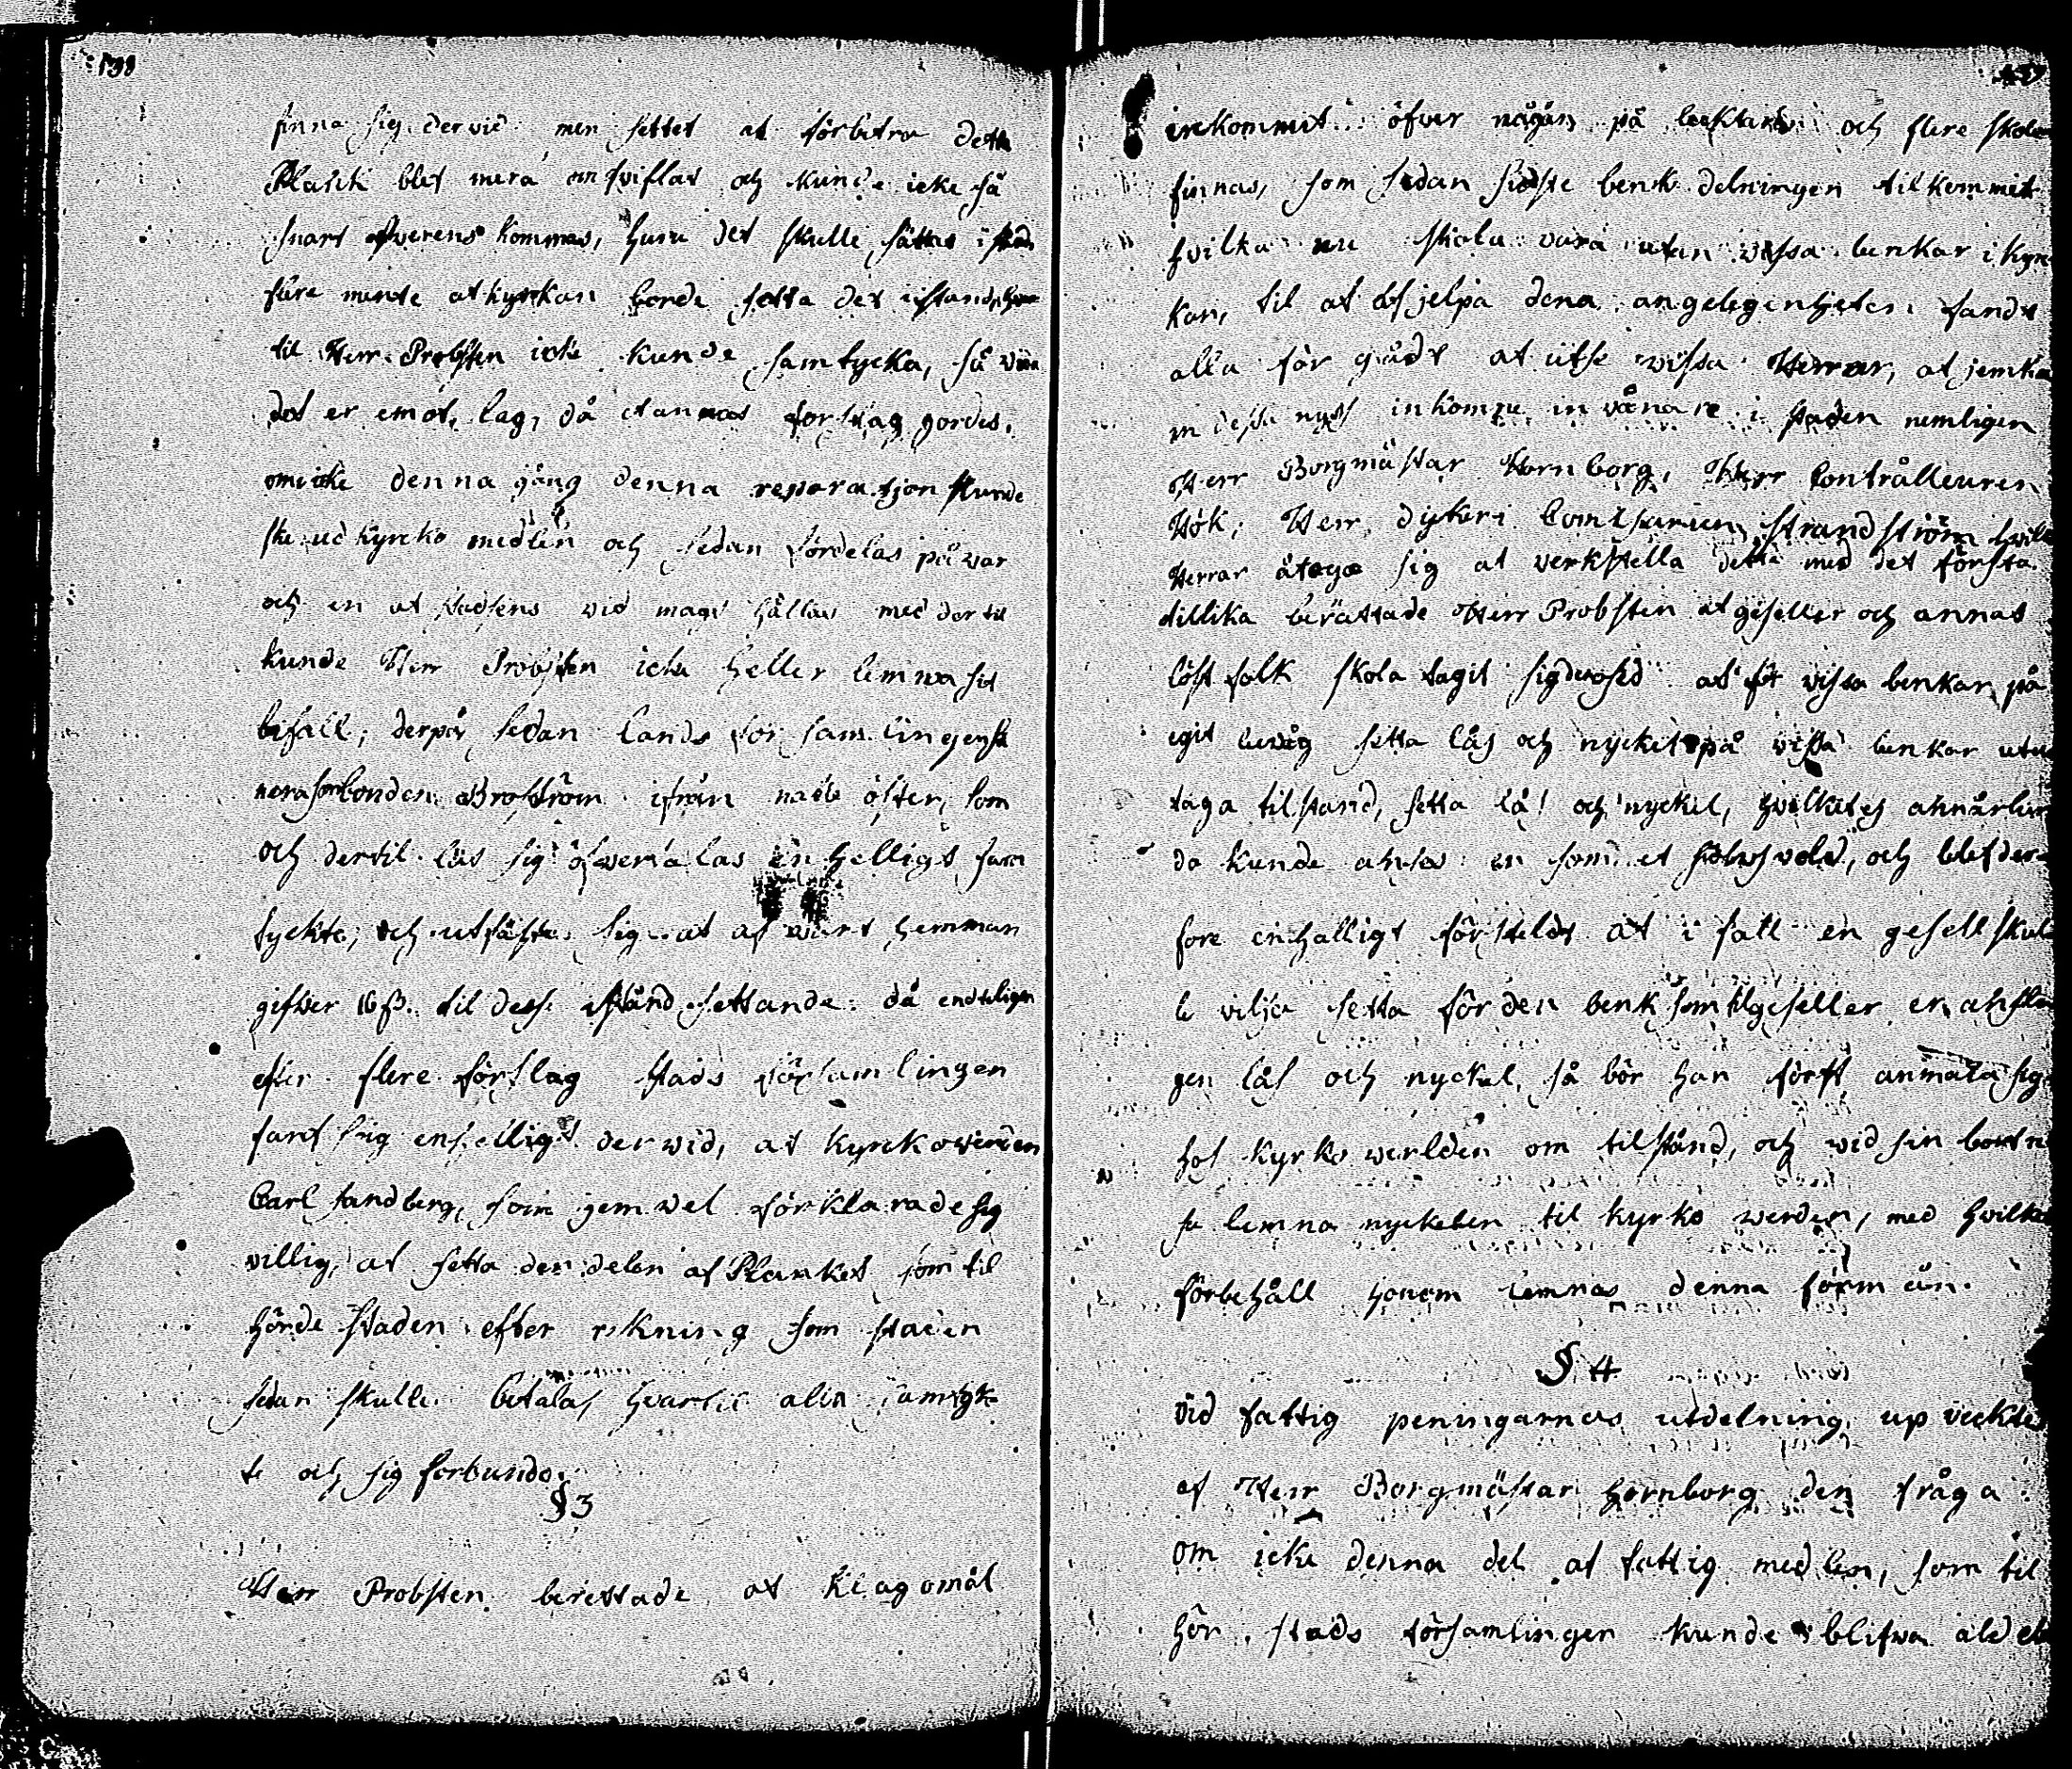 138
finna sig dervid, men settet at förbetra detta
Plank blef mera omtviflat och kunde icke så
snart öfverens kommas, huru det skulle sättas i stånd
flere mente at kyrkan borde setta det istånd, hvar
til Herr Probsten icke kunde samtycka, så vida
det er emot lag, då annat förslag gordes,
om icke denna gång denna reparatjon kunde
ske ud kyrcko medlen och sedan fördelas på var
och en at stadsens vid magt hållas med der til
kunde Herr Probsten icke heller lemna sit
bifall, derpå sedan lands församlingens
Broström ifrån öster, som
och dertil lät sig öfvertalas enhelligt sam
tyckte, och utfäste sig at af vart hemman
gifver 16 ß. til dess iståndsettande. då endteligen
efter flere förslag stads församlingen
fant sig enhelligt derwid, at kyrckoverden
Carl Sandberg, som jemvel förklarade sig
villig, at setta den delen af Planket som til
hörde staden efter rekning som staden
sedan skulle betala, hvartil alla samtyk
te och sig förbundo.
§ 3
Herr Probsten berettade at klagomål
inkommit öfver mågån på leektarn och flere skola
finnas, som sedan sidste benk delningen tilkommit
hvilka nu skola vara utan vissa benkar i kyrc
kan, til at afhjelpa dena angelegenheten fandt
alla för gådt at utse vissa Herrar, at jemka
in dessa nyss inkomne invånare i staden nemligen
Herr Borgmästar Hornborg, Herr Contrålleuren
Hök, Herr dykeri Comissarien Strandström hvilke
Herrar åtogo sig at verkstella detta med det första.
tillika berättade Herr Probsten at geseller och annat
löst folk skola tagit sig at för vissa benkar på
egit bevåg setta lås och nyckel på vissa benkar utan
taga tilstånd, setta lås och nyckel, hvilket ej annårlun
da kunde anses en som et sielfsvold, och blef der
före enhalligt försteldt at i fall en gesell skul
le vilja setta för den benk som til geseller er anslan
gen lås och nyckel, så bör han först anmäla sig
hos kyrko verlden om tilstånd, och vid sin bort re
sa lemna nyckelen til kyrko werden, med hvilket
förbehåll honom lemnas denna förmån.
§ 4
Vid fattig peningarnas utdelning, up vecktes
af Herr Borgmästar Hornborg den fråga
om icke denna del af fattig medlen, som til
hör stads församlingen kunde blifva aldel